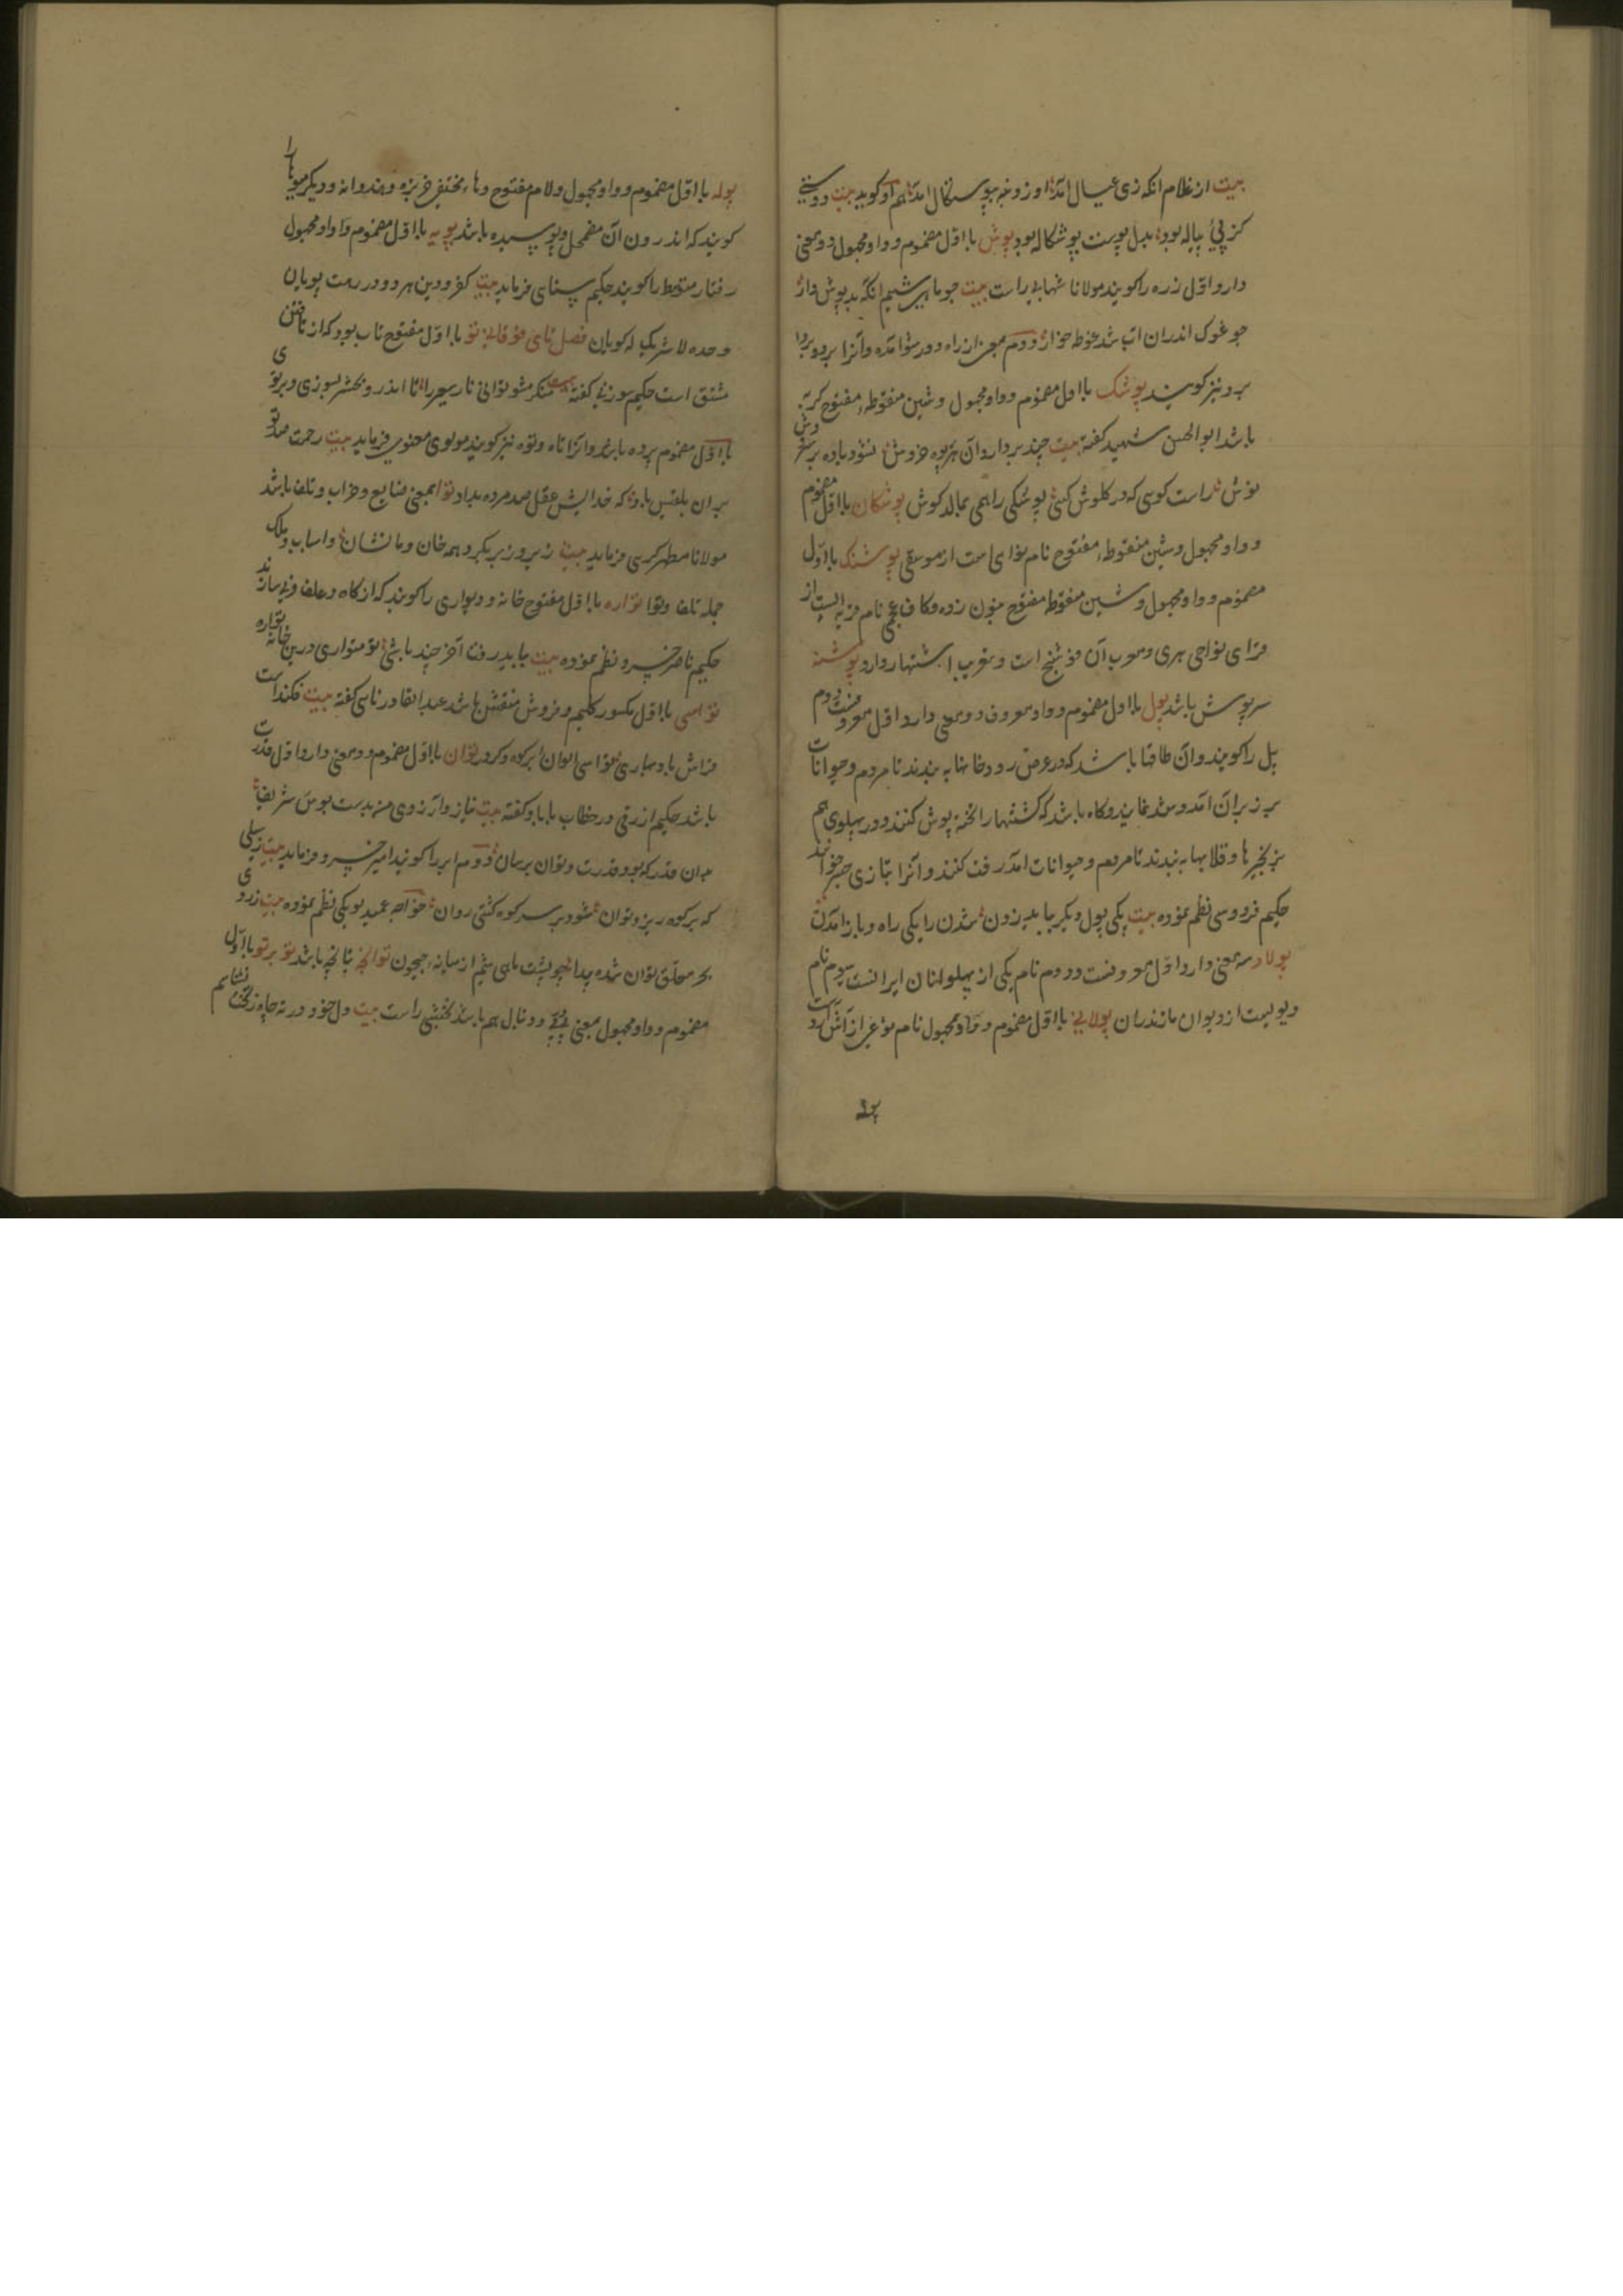 بیت از غلام انکه زی عیال آمد او زوبنه بپوسکال آمد هم او کوید بیت دوستی
کز پی پیاله بود بدل پوست پوشکاله بود پوش با اول مضموم و واو مجهول دو معنی
دارد اول زره را کویند مولانا شهاب راست بیت چو ماهی شیم انکه بد پوش دار
چو غوک اندران آب شد غوطه خوار دوم بمعنی از راه دور شو آمده و آنرا بردو بردا
برد نیز کویند پوشک با اول مضموم و واو مجهول و شین منقوطه مفتوح کربه
باشد ابوالحسن شهید کفته بیت چند بردارد آن هریوه خروش نشود باده بر سرودش
نوش راست کوسی که در کلوش کسی پوشکی را همی بمالد کوش پوشکان با اول مضموم
و واو مجهول و شین منقوطه مفتوح نام نوای است از موسقی پوشنک با اول
مضموم و واو مجهول و شین منقوطه مفتوح بنون زده و کاف عجمی نام قریه ایست از
قرای نواحی هری و معرب آن فوشنج است و بتعریب اشتهار دارد پوشنه
سرپوش باشد پول با اول مضموم و واو معروف دو معنی دارد اول معروفست دوم
پل را کویند و آن طاقها باشد که در عرض رودخانها به بندند تا مردم و حیوانات
بر زبر آن آمد و شد نمایند و کاه باشد که کشتیها را تخته پوش کنند و در پهلوی هم
بزنجیرها و قلابها به بندند تا مردم و حیوانات آمد رفت کنند و آنرا بتازی جسر خوانند
حکیم فردوسی نظم نموده بیت یکی پول دیکر بباید زدن شدن را یکی راه و باز آمدن
پولاد سه معنی دارد اول معروفست دوم نام یکی از پهلوانان ایرانست سوم نام
دیولیست از دیوان مازندران پولانی با اول مضموم و واو مجهول نام نوعی از آش آرد است
پوله
پوله با اول مضموم و واو مجهول و لام مفتوح و هاء مختفی خربزه و هندوانه و دیکر میوها را
کویند که اندرون آن مضمحل و پوسیده باشد پویه با اول مضموم و واو مجهول
رفتار متوسط را کویند حکیم سنای فرماید بیت کفر و دین هر دو در رهت پویان
وحده لا شریک له کویان فصل تای فوقانی تو با اول مفتوح تاب بود که از تافتن
مشتق است حکیم سوزنی کفته بیت منکر مشو توانی نار سعیر را تا اندر و بحشر بسوزی و برتوی
با اول مضموم پرده باشد و آنرا تاه و توه نیز کویند مولوی معنوی فرماید بیت رحمت صد تو
بران بلقیس باد که خدایش عقل صد مرده بداد توا بمعنی ضایع و خراب و تلف باشد
مولانا مطهر کری فرماید بیت زیر و زبر بکرد همه خان و مانشان و اسباب و ملک
جمله تلف و توا تواره با اول مفتوح خانه و دیواری را کویند که از کاه و علف و نی سازند
حکیم ناصر خسرو نظم نموده بیت بباید رفت آخر چند باشی تو متواری درین خانه تواره
تواسی با اول مکسور کلیم و فروش منقش باشد عبدالقادر نائی کفته بیت فکنداست
فراش باد بهاری تواسی الوان بر کوه و کردر توان با اول مضموم دو معنی دارد اول قدرت
باشد حکیم ازرقی در خطاب با باد کفته بیت نیاز و آرزوی من بدست بوس شریف
بدان قدر که بود قدرت و توان برسان دوم ابر را کویند امیر خسرو فرماید بیت ز سیلی
که بر کوه ریزد توان شود بر سر کوه کشتی روان خواجه عمید لویکی نظم نموده بیت ز روی
بحر معلق توان شده پیدا چو پشت ماهی شیم از میانه جیحون توانچه تپانچه باشد تو بر تو با اول
مضموم و واو مجهول بمعنی و دنبال هم باشد بخشبی راست بیت دل خود در ته چاه زنخت نشناسم